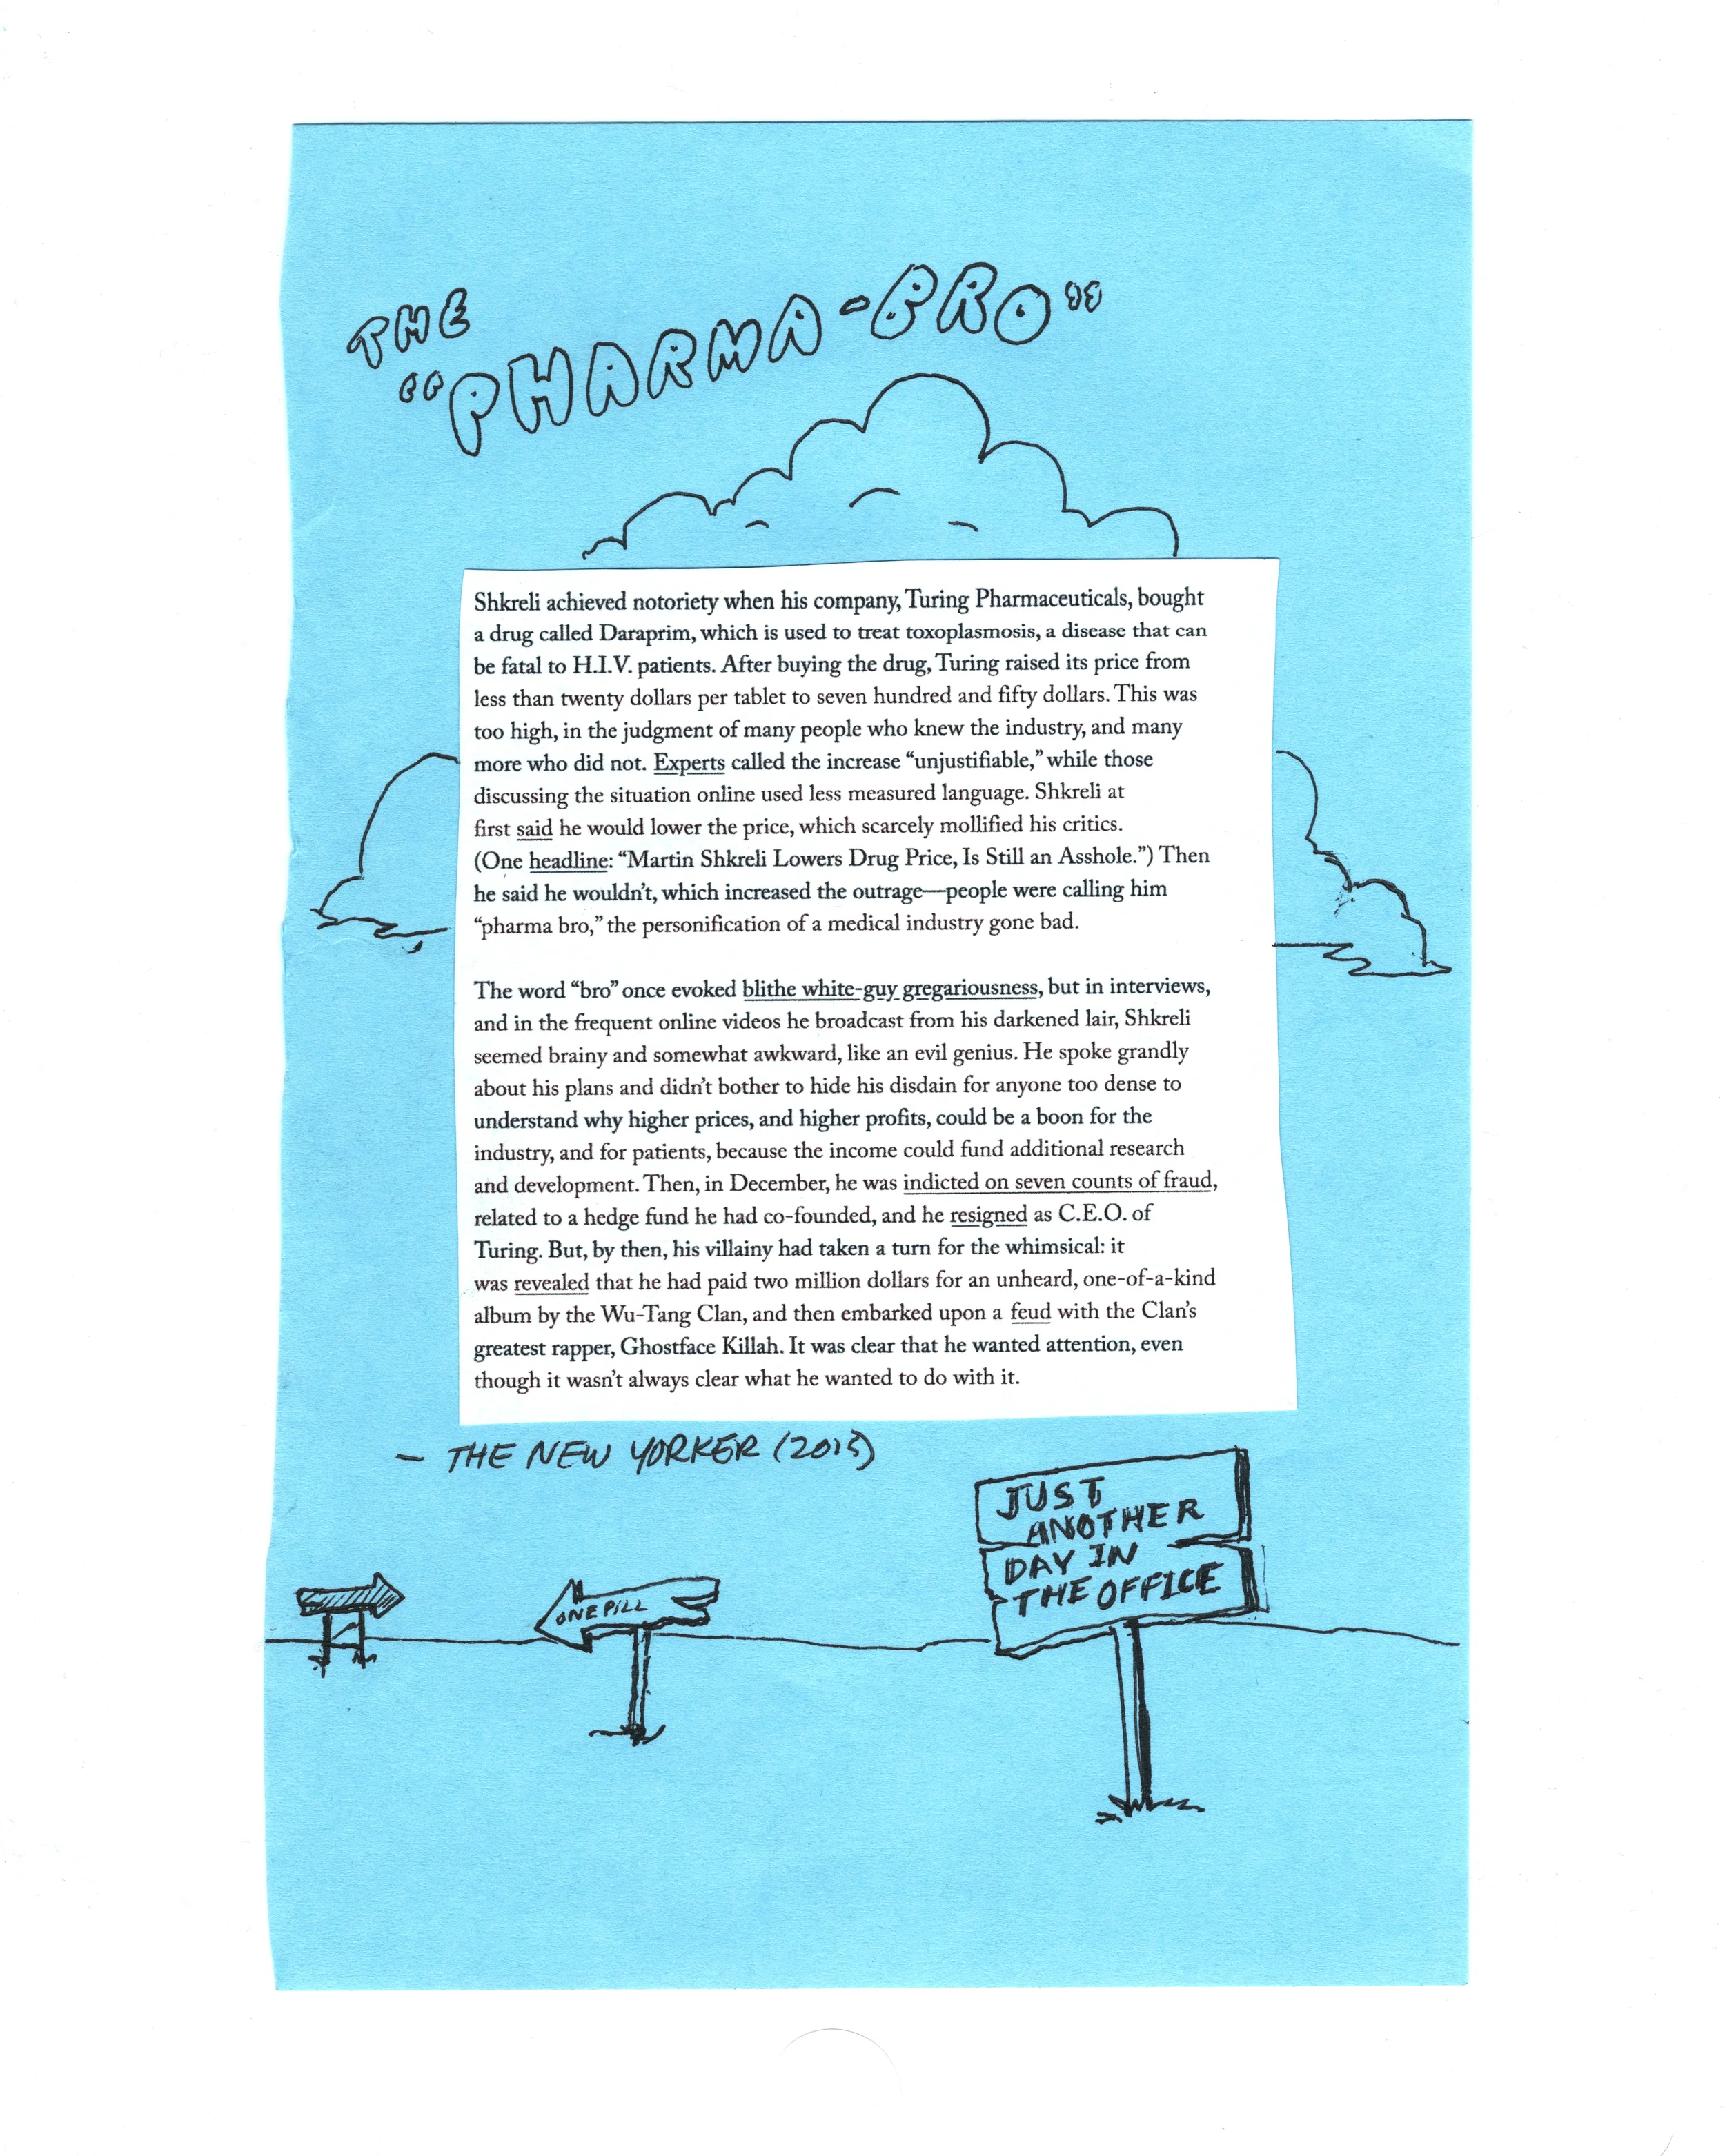 THE
"PHARMA-BRO"
Shkreli achieved notoriety when his company, Turing Pharmaceuticals, bought
a drug called Daraprim, which is used to treat toxoplasmosis, a disease that can
be fatal to H.I.V. patients. After buying the drug, Turing raised its price from
less than twenty dollars per tablet to seven hundred and fifty dollars. This was
too high, in the judgment of many people who knew the industry, and many
more who did not. Experts called the increase “unjustifiable,” while those
discussing the situation online used less measured language. Shkreli at
first said he would lower the price, which scarcely mollified his critics.
(One headline: “Martin Shkreli Lowers Drug Price, Is Still an Asshole.”) Then
he said he wouldn’t, which increased the outrage—people were calling him
“pharma bro,” the personification of a medical industry gone bad.
The word “bro” once evoked blithe white-guy gregariousness, but in interviews,
and in the frequent online videos he broadcast from his darkened lair, Shkreli
seemed brainy and somewhat awkward, like an evil genius. He spoke grandly
about his plans and didn’t bother to hide his disdain for anyone too dense to
understand why higher prices, and higher profits, could be a boon for the
industry, and for patients, because the income could fund additional research
and development. Then, in December, he was indicted on seven counts of fraud,
related to a hedge fund he had co-founded, and he resigned as C.E.O. of
Turing. But, by then, his villainy had taken a turn for the whimsical: it
was revealed that he had paid two million dollars for an unheard, one-of-a-kind
album by the Wu-Tang Clan, and then embarked upon a feud with the Clan’s
greatest rapper, Ghostface Killah. It was clear that he wanted attention, even
though it wasn’t always clear what he wanted to do with it.
— THE NEW YORKER (2015)
JUST
ANOTHER
DAY IN
THE OFFICE
ONE PILL